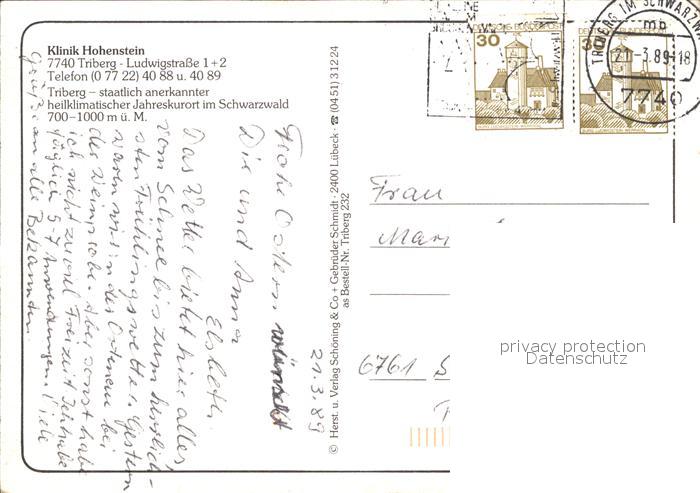 Klinik Hohenstein
7740 Triberg - Ludwigstraße 1+2
Telefon (0 77 22) 40 88 u. 40 89
Triberg – staatlich anerkannter
heilklimatischer Jahreskurort im Schwarzwald
700-1000 m ü. M.
21.3.89
Frohe Ostern wünscht
Dir und Anna
Elsbeth.
Das Wetter bietet hier alles,
vom Schnee bis zum herrlich-
sten Frühlingswetter. Gestern
waren wir in der Ortenau bei
der Weinprobe. Aber sonst habe
ich nicht zuviel Freizeit. Ich habe
täglich 5-7 Anwendungen. Liebe
Grüße an alle Bekannten.
© Herst. u. Verlag Schöning & Co + Gebrüder Schmidt · 2400 Lübeck · ☎ (04 51) 3 12 24
as Bestell-Nr. Triberg 232
DEUTSCHE BUNDESPOST
30
30
TRIBERG IM SCHWARZW
mb
21-3.89-18
7740
Frau
Mari
6761 S
privacy protection
Datenschutz